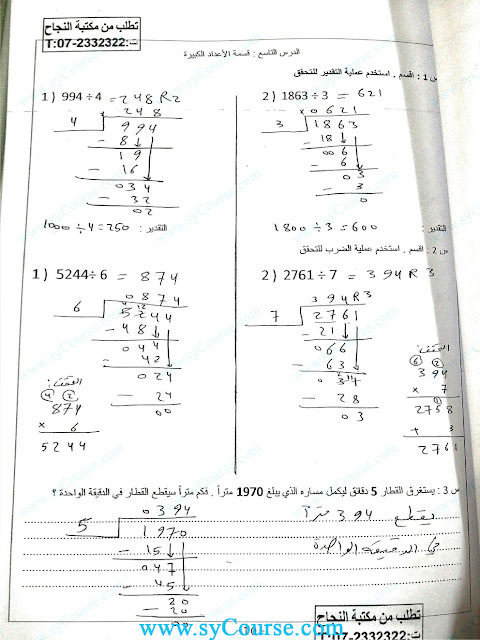 تطلب من مكتبة النجاح
ت:T:07-2332322
الدرس التاسع : قسمة الأعداد الكبيرة
س 1 : اقسم . استخدم عملية التقدير للتحقق
1) 994 ÷4 = 248 R2
248
4 994
- 8
19
- 16
034
- 32
02
التقدير : 1000 ÷ 4 = 250
2) 1863 ÷3 = 621
0621
3 1863
- 18
006
- 6
03
- 3
0
التقدير : 1800 ÷ 3 = 600
س 2 : اقسم . استخدم عملية الضرب للتحقق
1) 5244÷ 6 = 874
0874
6 5244
- 48
044
- 42
024
- 24
00
التحقق:
874
× 6
5244
2) 2761 ÷ 7 = 394 R 3
394 R 3
7 2761
- 21
066
- 63
031
- 28
03
التحقق:
394
× 7
2758
+ 3
2761
س 3 : يستغرق القطار 5 دقائق ليكمل مساره الذي يبلغ 1970 متراً . فكم متراً سيقطع القطار في الدقيقة الواحدة ؟
يقطع 394 متراً
في الدقيقة الواحدة
0394
5 1970
- 15
047
- 45
20
- 20
www.syCourse.com
تطلب من مكتبة النجاح
ت:T:07-2332322